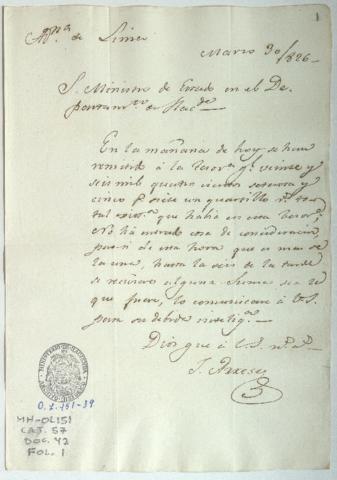 1
Ad.na de Lima
Marzo 30/826
S. Ministro de Estado en el De-
partam.to de Hac.da
En la mañana de hoy se han
remitido á la Tesor.a g.l veinte y
seis mil quatro cientos setenta y
cinco p.s siete un quartillo r.s to-
tal que había en esta Tesor.a
No há entrado cosa de consideracion
pues si de esta hora que es mas de
la una, hasta las seis de la tarde
se reciviere alguna suma sea la
que fuere, lo comunicaré á V.S.
para su debida
Dios gue á V.S. m.s a.s
MINISTERIO DE HACIENDA
O.L. 151-39
MH-OL151
CAJ. 57
DOC. 42
FOL. 1